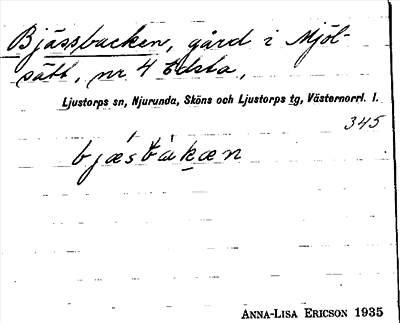 Bjässbacken, gård i Mjöl-
sätt, nr 4 Edsta,
Ljustorps sn, Njurunda, Sköns och Ljustorps tg, Västernorrl. l.
345
bjæs`bàkæn
ANNA-LISA ERICSON 1935